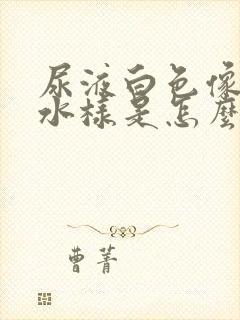 尿液白色像
水樣是怎麼
曹菁